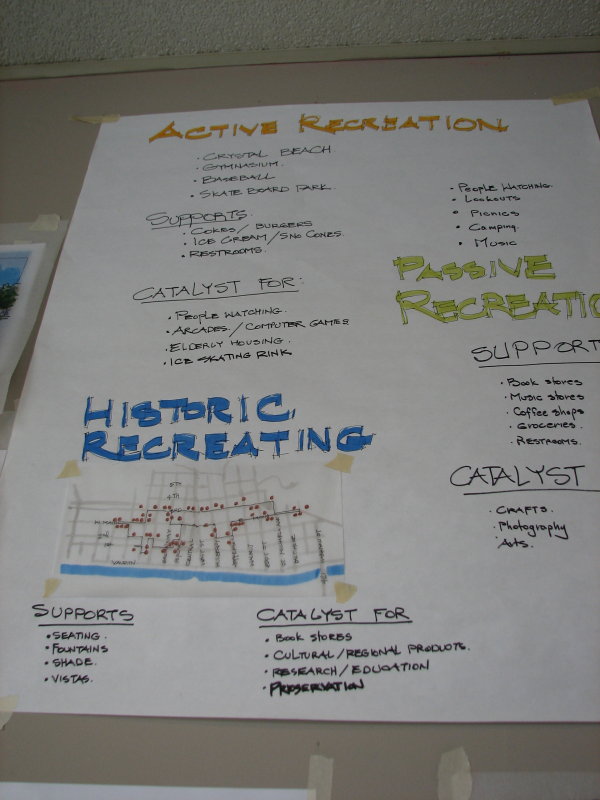 ACTIVE RECREATION
• CRYSTAL BEACH
• GYMNASIUM.
• BASEBALL
• SKATE BOARD PARK.
SUPPORTS.
• COKES/ BURGERS
• ICE CREAM/SNO CONES.
• RESTROOMS.
CATALYST FOR:
• PEOPLE WATCHING.
• ARCADES./COMPUTER GAMES
• ELDERLY HOUSING.
• ICE SKATING RINK
• PEOPLE WATCHING.
• LOOKOUTS
• PICNICS
• CAMPING.
• MUSIC
PASSIVE
RECREATIO
SUPPORT
• Book stores
• Music stores
• Coffee shops
• GROCERIES.
• RESTROOMS.
CATALYST
• CRAFTS.
• Photography
• Arts.
HISTORIC
RECREATING
5TH
4TH
WALNUT
SUPPORTS
• SEATING.
• FOUNTAINS
• SHADE.
• VISTAS.
CATALYST FOR
• BOOK STORES
• CULTURAL/REGIONAL PRODUCTS.
• RESEARCH/EDUCATION
• PRESERVATION